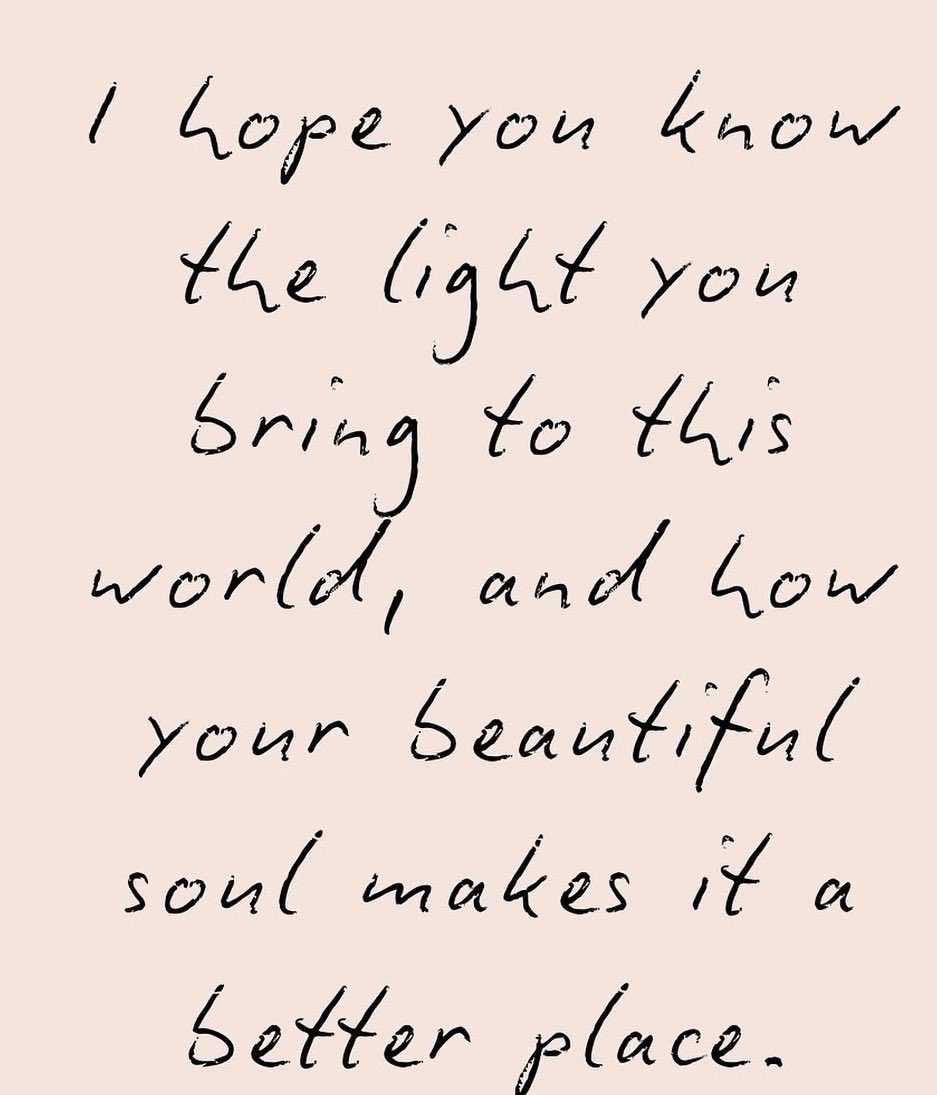 I hope you know
the light you
bring to this
world, and how
your beautiful
soul makes it a
better place.